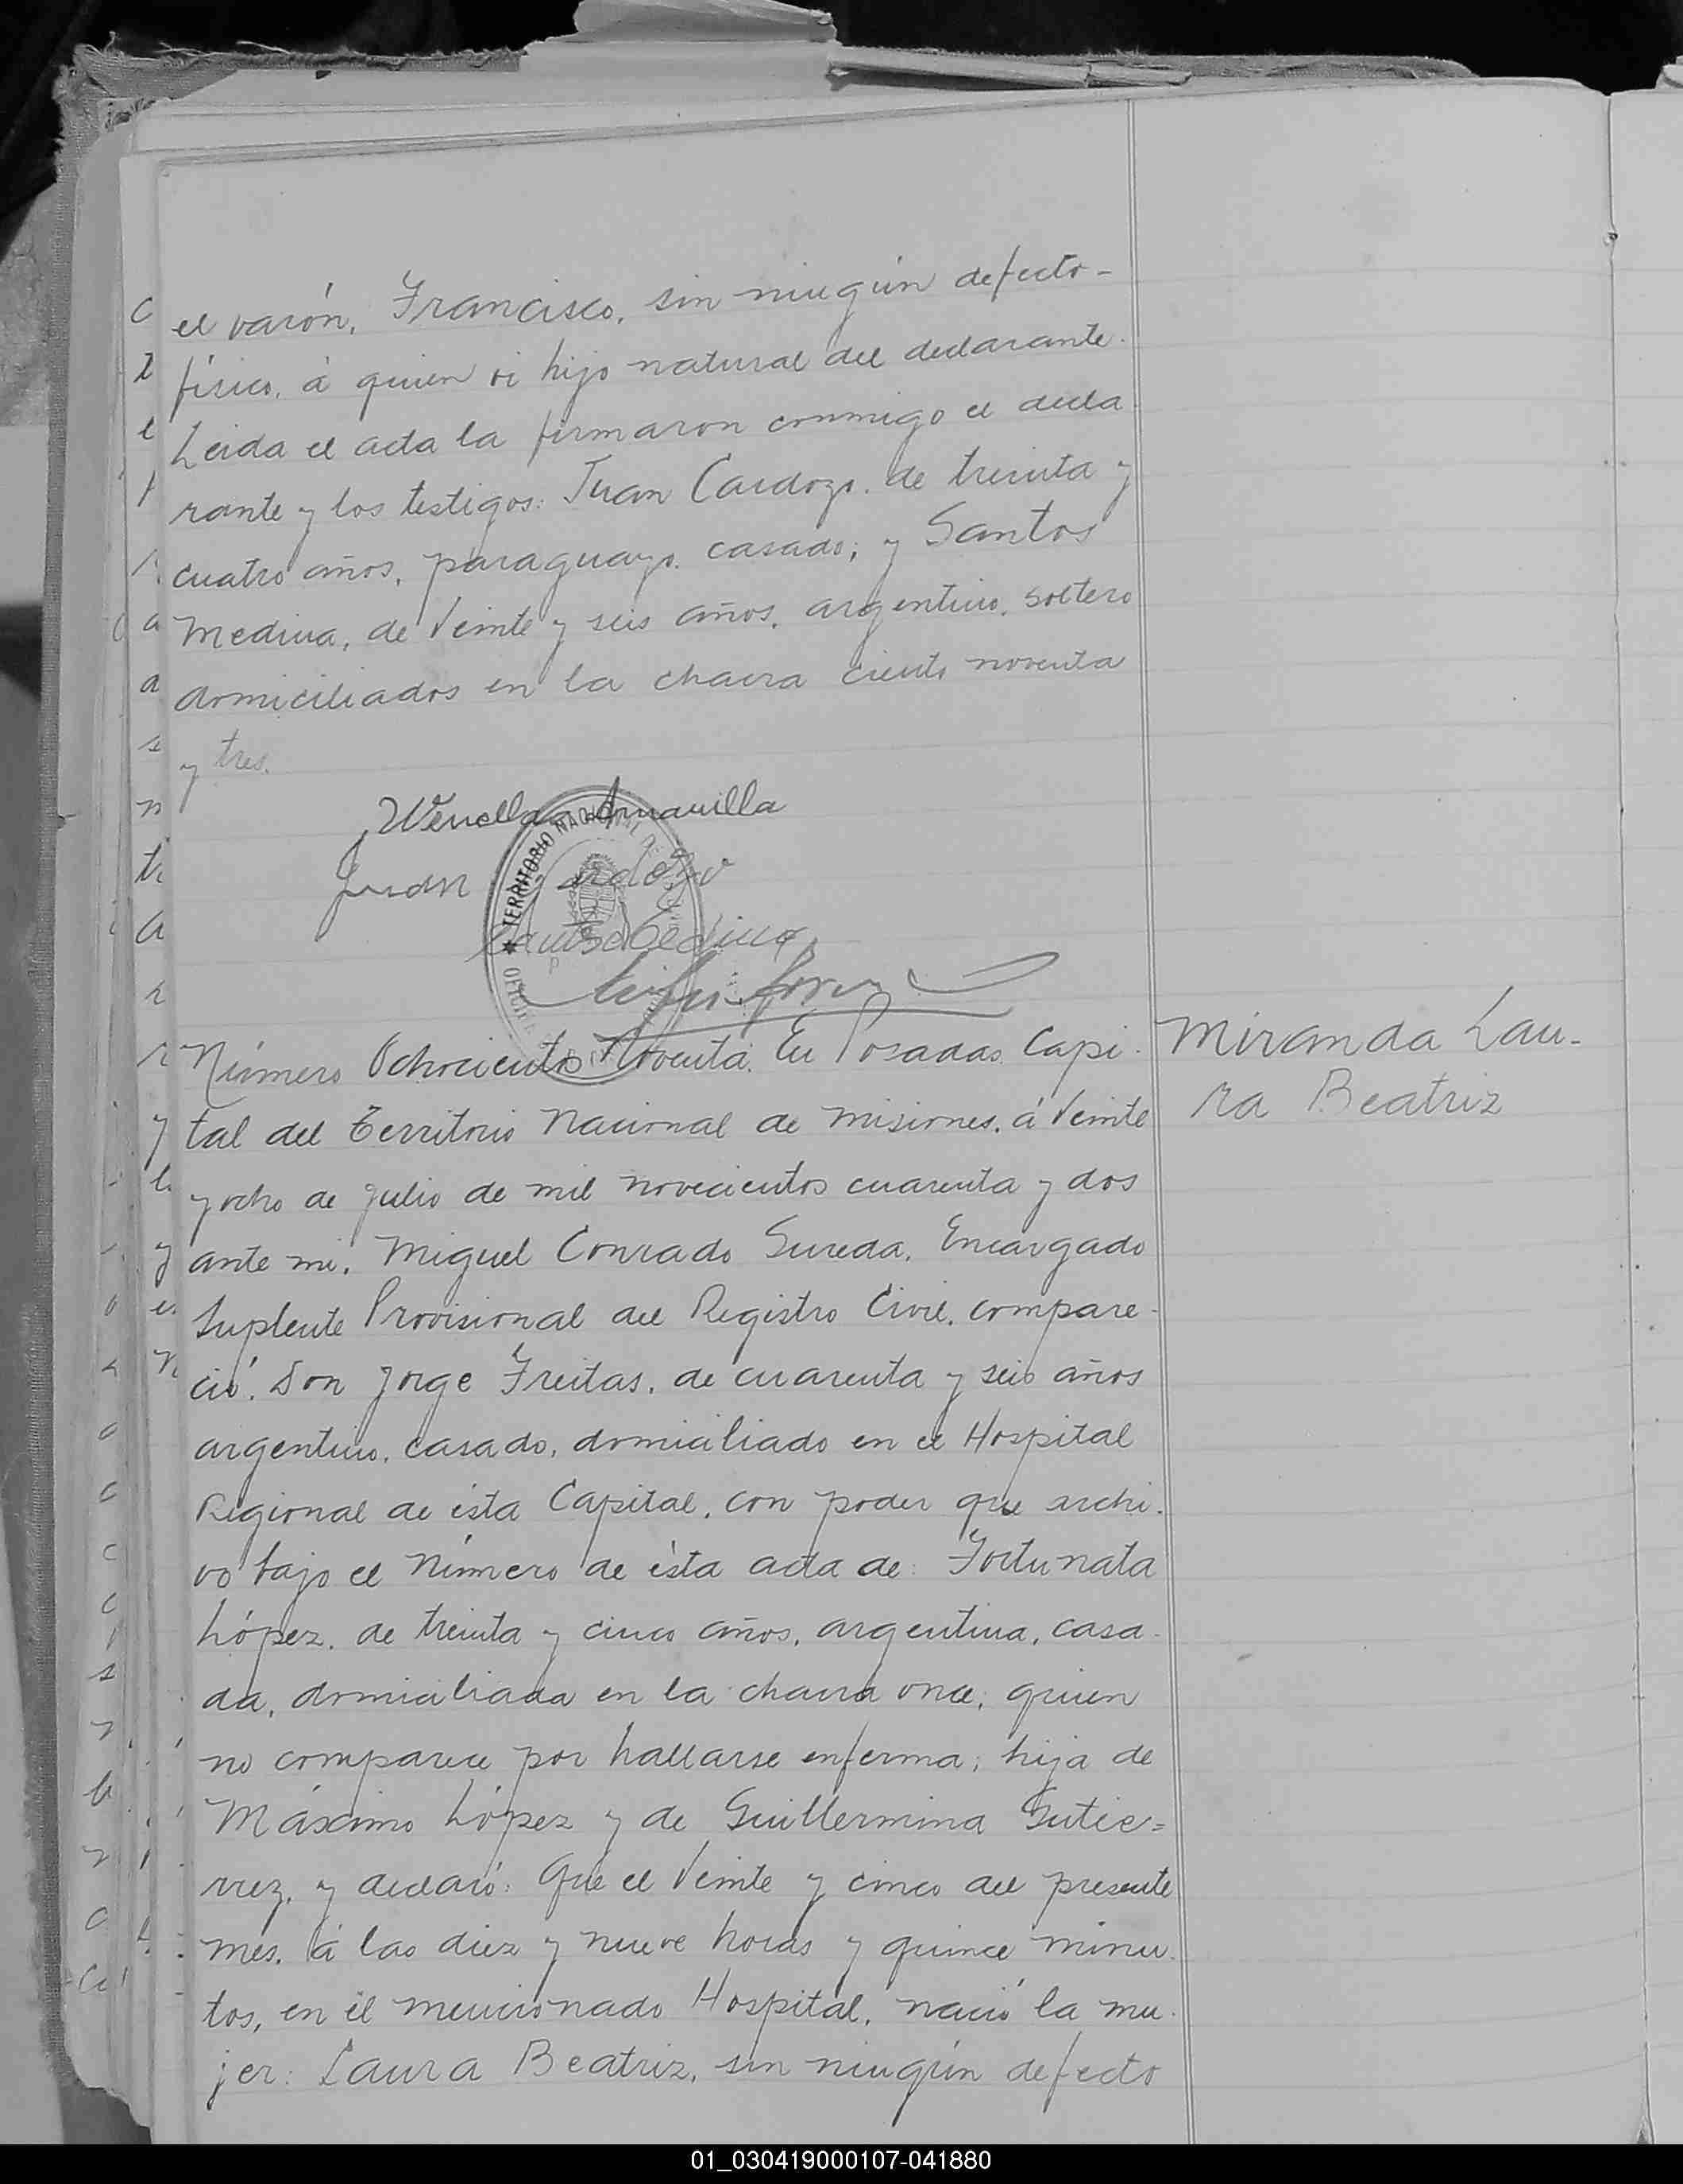 el varón, Francisco, sin ningún defecto-
físico, á quien vi hijo natural del declarante.
Leida el acta la firmaron conmigo el decla
rante y los testigos: Juan Cardozo, de treinta y
cuatro años, paraguayo, casado; y Santos
Medina, de Veinte y seis años, argentino, soltero
domiciliados en la chacra ciento noventa
y tres.
Juan Cardozo
TERRITORIO NACIONAL DE
Número Ochocientos Noventa. En Posadas, Capi-
tal del Territorio Nacional de Misiones, á Veinte
y ocho de Julio de mil novecientos cuarenta y dos
ante mi, Miguel Conrado Sureda, Encargado
Suplente Provisional del Registro Civil, compare-
ció: Don Jorge Freitas, de cuarenta y seis años
argentino, casado, domiciliado en el Hospital
Regional de ésta Capital, con poder que archi-
vo bajo el Número de ésta acta de: Fortunata
López, de treinta y cinco años, argentina, casa-
da, domiciliada en la chacra once; quien
no comparece por hallarse enferma; hija de
Máximo López y de Guillermina Gutie=
rrez, y declaró: Que el Veinte y cinco del presente
mes, á las diez y nueve horas y quince minu-
tos, en el mencionado Hospital, nació la mu-
jer: Laura Beatriz, sin ningún defecto
Miranda Lau-
ra Beatriz
01_030419000107-041880